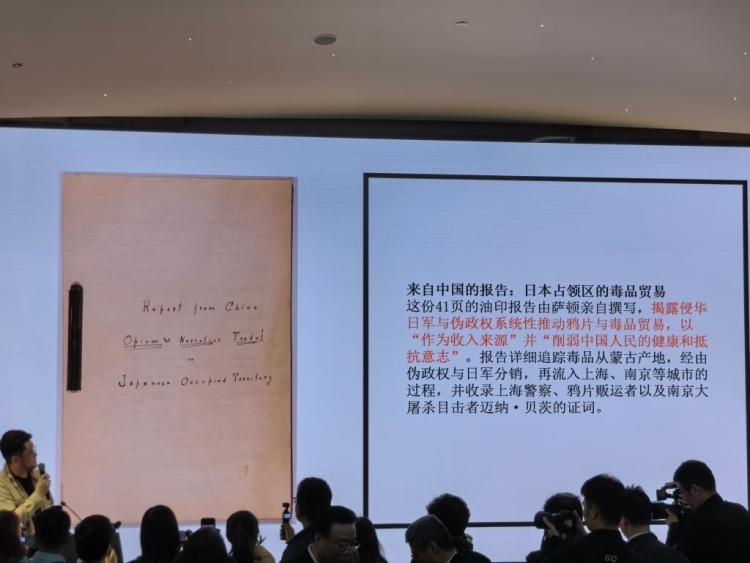 Report from China
Opium & Narcotics Trade
in
Japanese Occupied Territory
来自中国的报告：日本占领区的毒品贸易
这份41页的油印报告由萨顿亲自撰写，揭露侵华
日军与伪政权系统性推动鸦片与毒品贸易，以
“作为收入来源”并“削弱中国人民的健康和抵
抗意志”。报告详细追踪毒品从蒙古产地，经由
伪政权与日军分销，再流入上海、南京等城市的
过程，并收录上海警察、鸦片贩运者以及南京大
屠杀目击者迈纳·贝茨的证词。